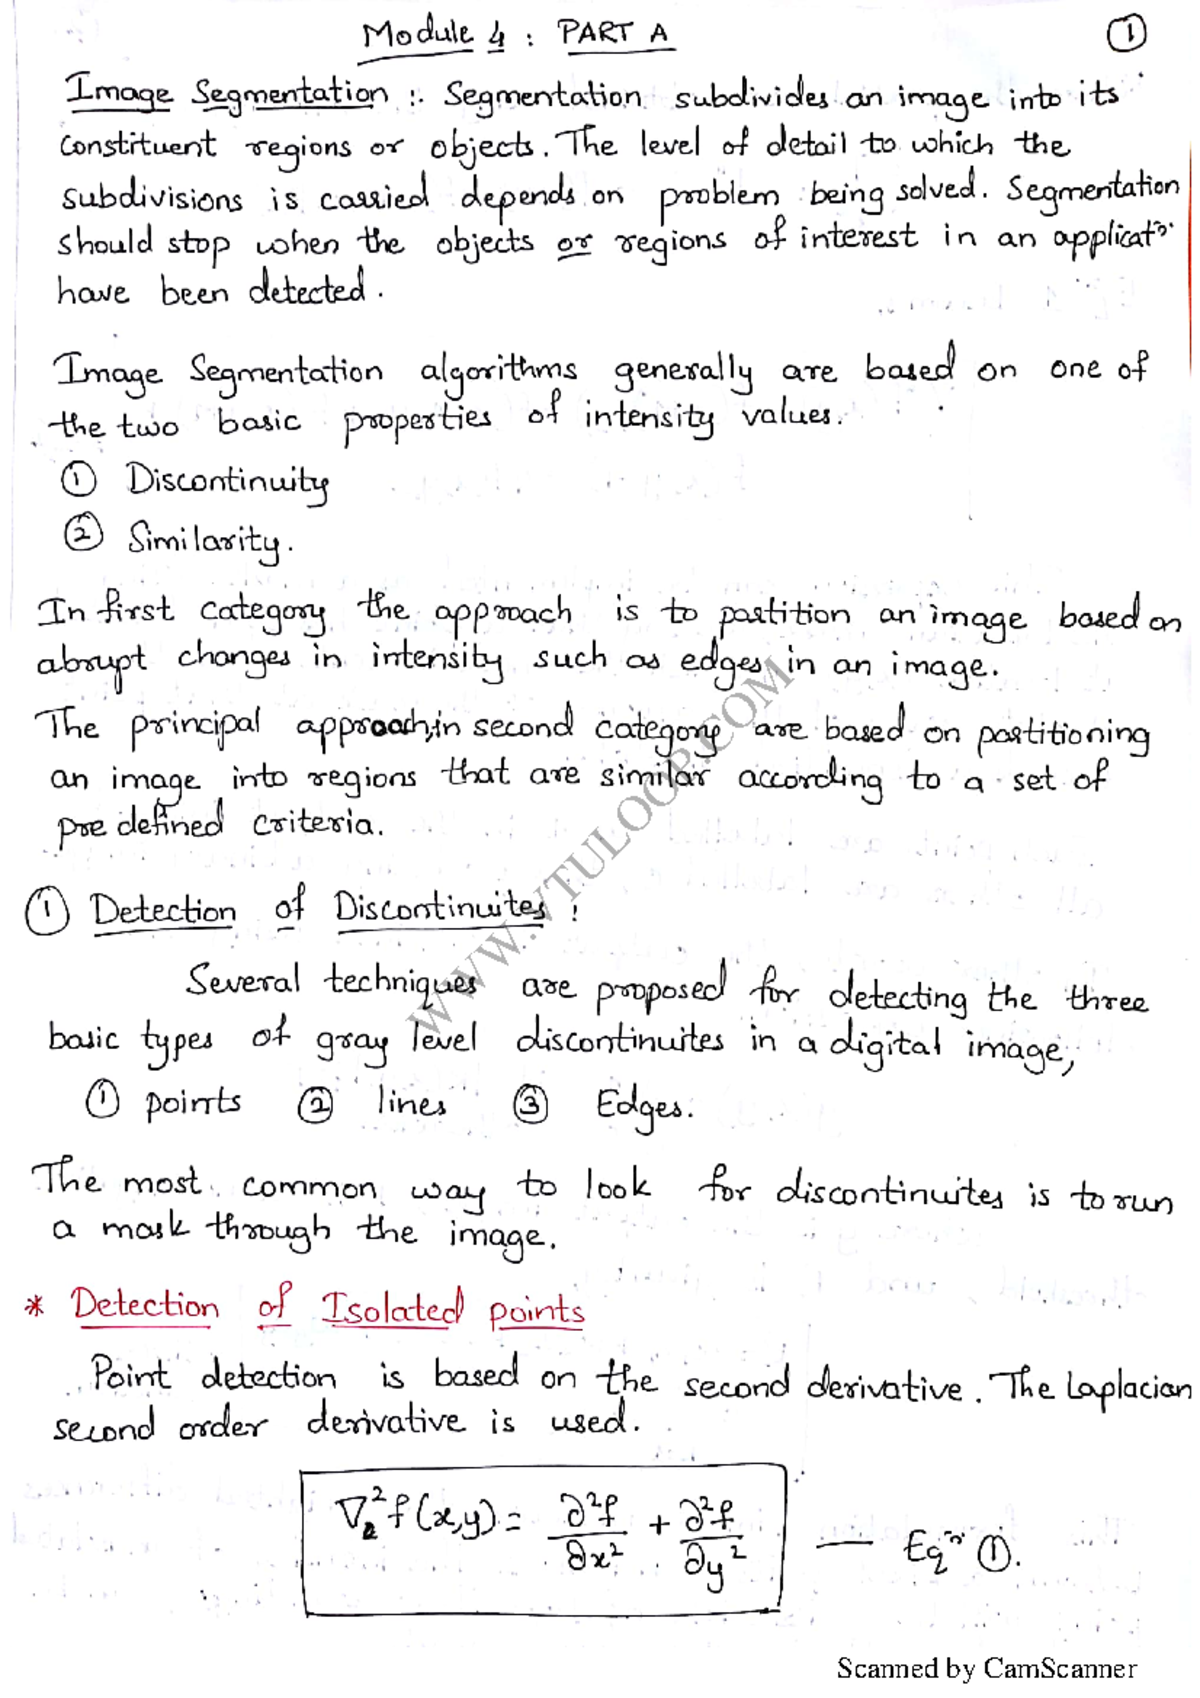 Module 4 : PART A
①
Image Segmentation :- Segmentation subdivides an image into its
constituent regions or objects. The level of detail to which the
subdivisions is carried depends on problem being solved. Segmentation
should stop when the objects or regions of interest in an applicatⁿ
have been detected.
Image Segmentation algorithms generally are based on one of
the two basic properties of intensity values.
① Discontinuity
② Similarity.
In first category the approach is to partition an image based on
abrupt changes in intensity such as edges in an image.
The principal approach, in second category are based on partitioning
an image into regions that are similar according to a set of
pre defined criteria.
① Detection of Discontinuites :
Several techniques are proposed for detecting the three
basic types of gray level discontinuites in a digital image,
① points ② lines ③ Edges.
The most common way to look for discontinuites is to run
a mask through the image.
* Detection of Isolated points
Point detection is based on the second derivative. The Laplacian
second order derivative is used.
∇²f(x,y) = ∂²f/∂x² + ∂²f/∂y² — Eqⁿ ①.
WWW.VTULOOP.COM
Scanned by CamScanner